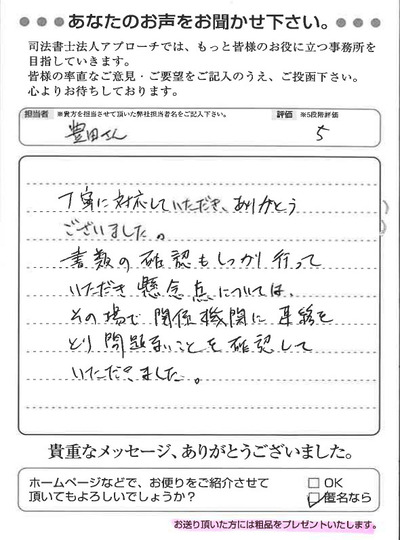 ●●● あなたのお声をお聞かせ下さい。 ●●●
司法書士法人アプローチでは、もっと皆様のお役に立つ事務所を
目指していきます。
皆様の率直なご意見・ご要望をご記入のうえ、ご投函下さい。
心よりお待ちしております。
担当者 ※貴方を担当させて頂いた弊社担当者名をご記入下さい。 評価 ※5段階評価
豊田さん 5
丁寧に対応していただき、ありがとう
ございました。
書類の確認もしっかり行って
いただき懸念点については、
その場で関係機関に連絡を
とり問題ないことを確認して
いただきました。
貴重なメッセージ、ありがとうございました。
ホームページなどで、お便りをご紹介させて
頂いてもよろしいでしょうか？
□ OK
☑ 匿名なら
お送り頂いた方には粗品をプレゼントいたします。